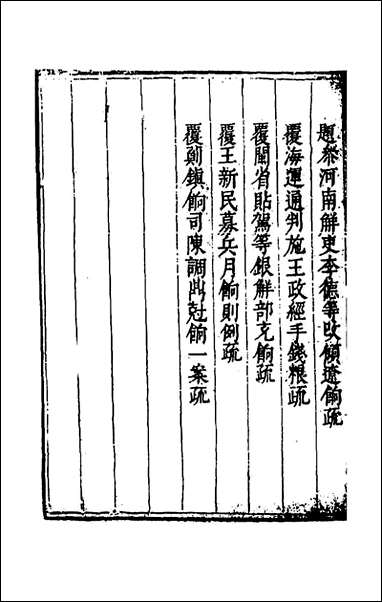 題參河南解吏李德等改領遼餉疏
覆海運通判施王政經手錢粮疏
覆閩省貼駕等銀解部充餉疏
覆王新民募兵月餉則例疏
覆薊鎮餉司陳調鼎尅餉一案疏